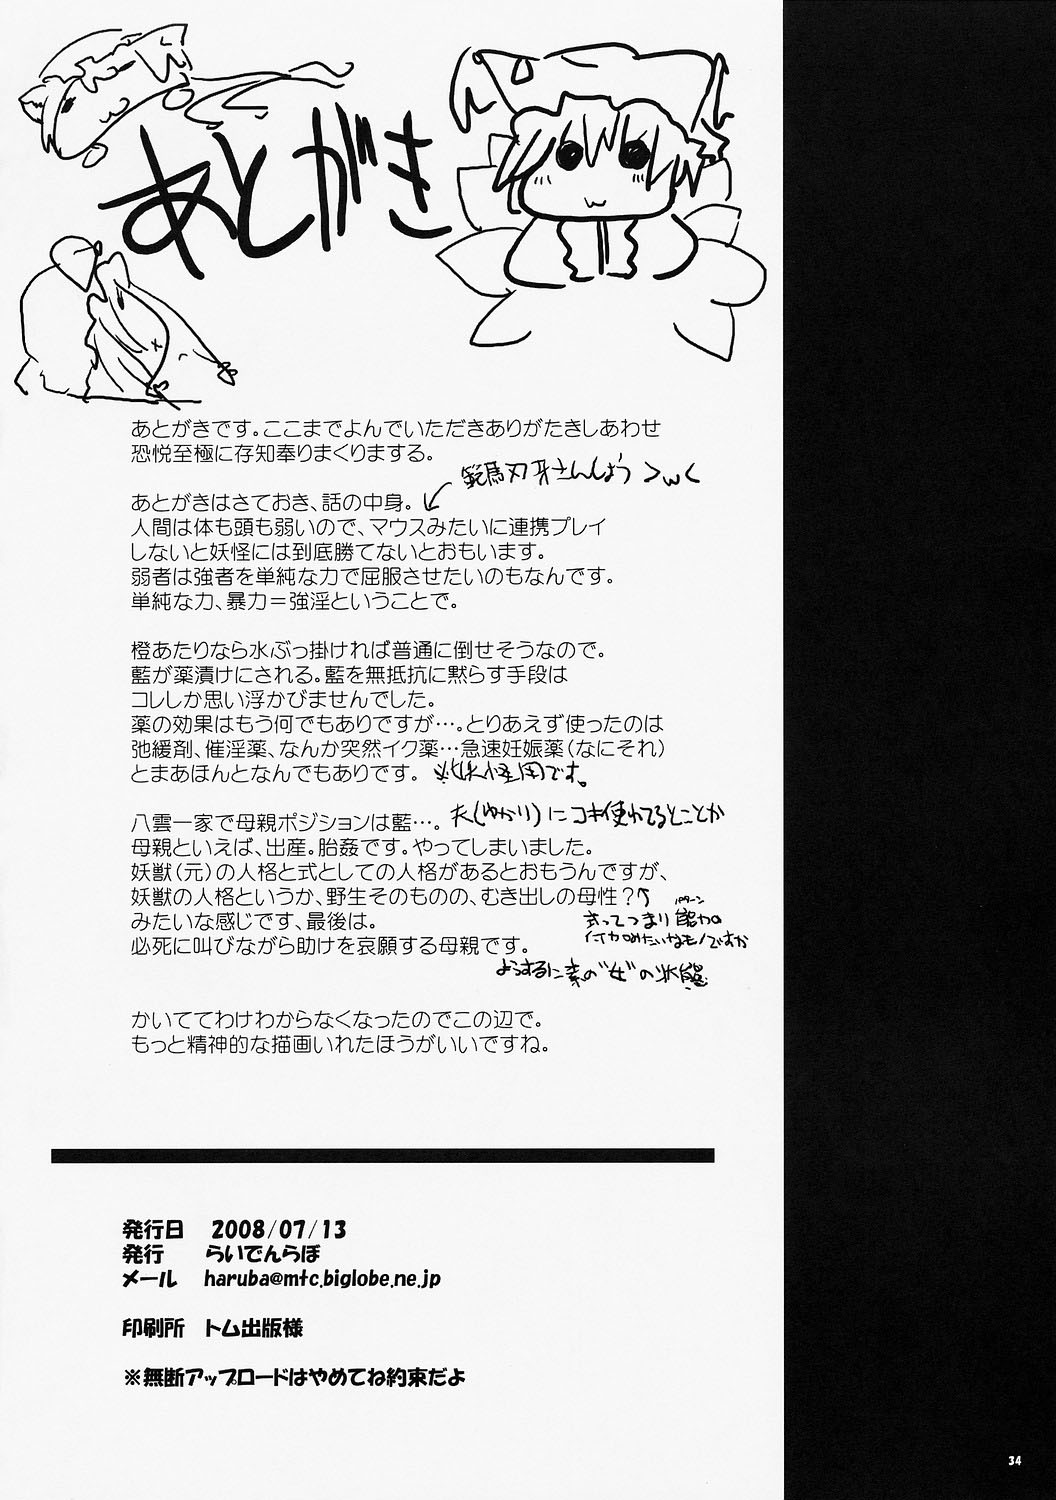 あとがき
あとがきです。ここまでよんでいただきありがたきしあわせ
恐悦至極に存知奉りまくりまする。
範馬刃牙さんしょう >w<
あとがきはさておき、話の中身。
人間は体も頭も弱いので、マウスみたいに連携プレイ
しないと妖怪には到底勝てないとおもいます。
弱者は強者を単純な力で屈服させたいのもなんです。
単純な力、暴力＝強淫ということで。
橙あたりなら水ぶっ掛ければ普通に倒せそうなので。
藍が薬漬けにされる。藍を無抵抗に黙らす手段は
コレしか思い浮かびませんでした。
薬の効果はもう何でもありですが…。とりあえず使ったのは
弛緩剤、催淫薬、なんか突然イク薬…急速妊娠薬（なにそれ）
とまあほんとなんでもありです。 ※妖怪用です。
八雲一家で母親ポジションは藍…。 夫(ゆかり)にコキ使われてるとことか
母親といえば、出産。胎姦です。やってしまいました。
妖獣（元）の人格と式としての人格があるとおもうんですが、
妖獣の人格というか、野生そのものの、むき出しの母性？
パターン
みたいな感じです、最後は。 式ってつまり能力の
付加みたいなモノですか
必死に叫びながら助けを哀願する母親です。
ようするに素の"女"の状態
かいててわけわからなくなったのでこの辺で。
もっと精神的な描画いれたほうがいいですね。
発行日 2008/07/13
発行 らいでんらぼ
メール haruba@mtc.biglobe.ne.jp
印刷所 トム出版様
※無断アップロードはやめてね約束だよ
34